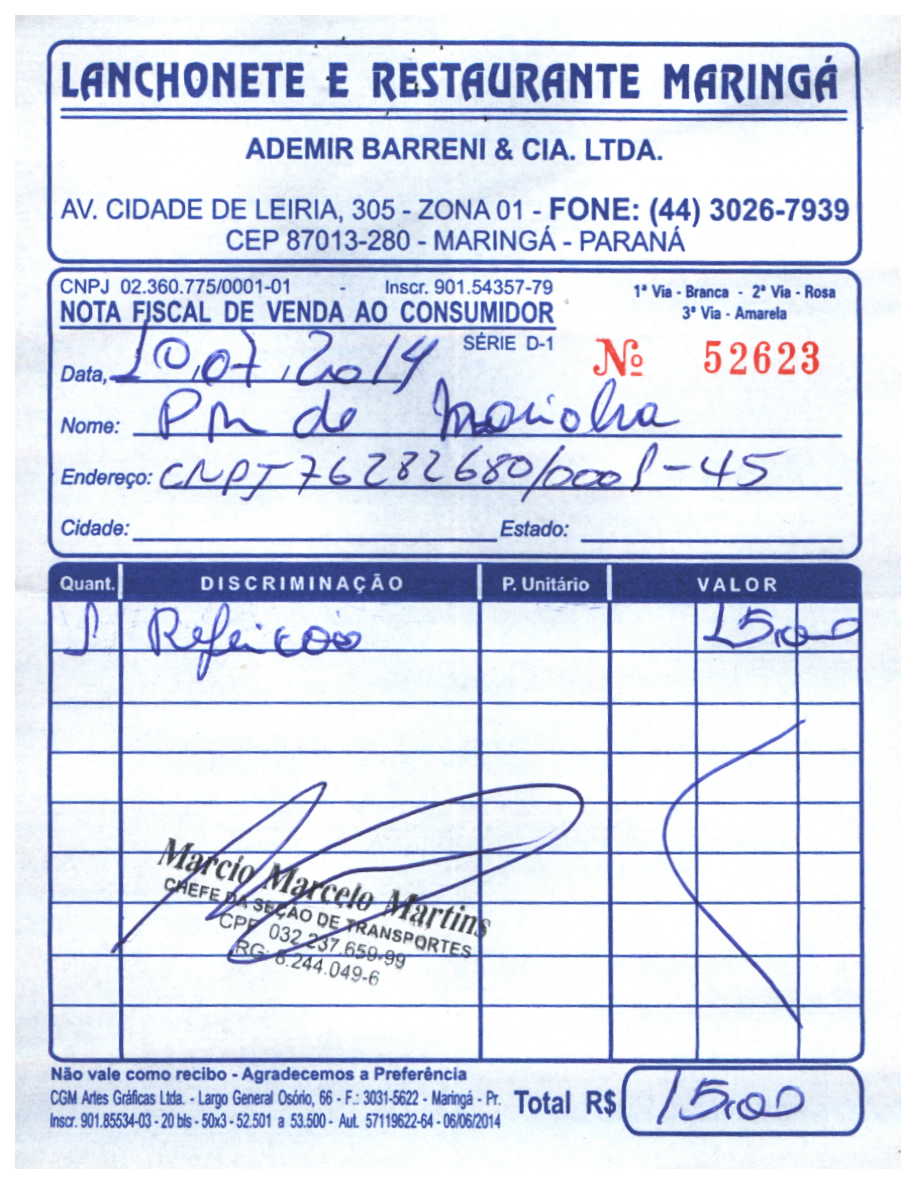 LANCHONETE E RESTAURANTE MARINGÁ
ADEMIR BARRENI & CIA. LTDA.
AV. CIDADE DE LEIRIA, 305 - ZONA 01 - FONE: (44) 3026-7939
CEP 87013-280 - MARINGÁ - PARANÁ
CNPJ 02.360.775/0001-01 - Inscr. 901.54357-79
1ª Via - Branca - 2ª Via - Rosa
3ª Via - Amarela
NOTA FISCAL DE VENDA AO CONSUMIDOR
SÉRIE D-1
Nº 52623
Data, 10,07,2014
Nome: PM de
Endereço: CNPJ 76282680/0001-45
Cidade: Estado:
Quant. DISCRIMINAÇÃO P. Unitário VALOR
1 Refeicoo 15,00
Marcio Marcelo Martins
CHEFE DA SEÇÃO DE TRANSPORTES
CPF 032.237.659-99
RG: 6.244.049-6
Não vale como recibo - Agradecemos a Preferência
CGM Artes Gráficas Ltda. - Largo General Osório, 66 - F.: 3031-5622 - Maringá - Pr.
Inscr. 901.85534-03 - 20 bls - 50x3 - 52.501 a 53.500 - Aut. 57119622-64 - 06/06/2014
Total R$ 15,00